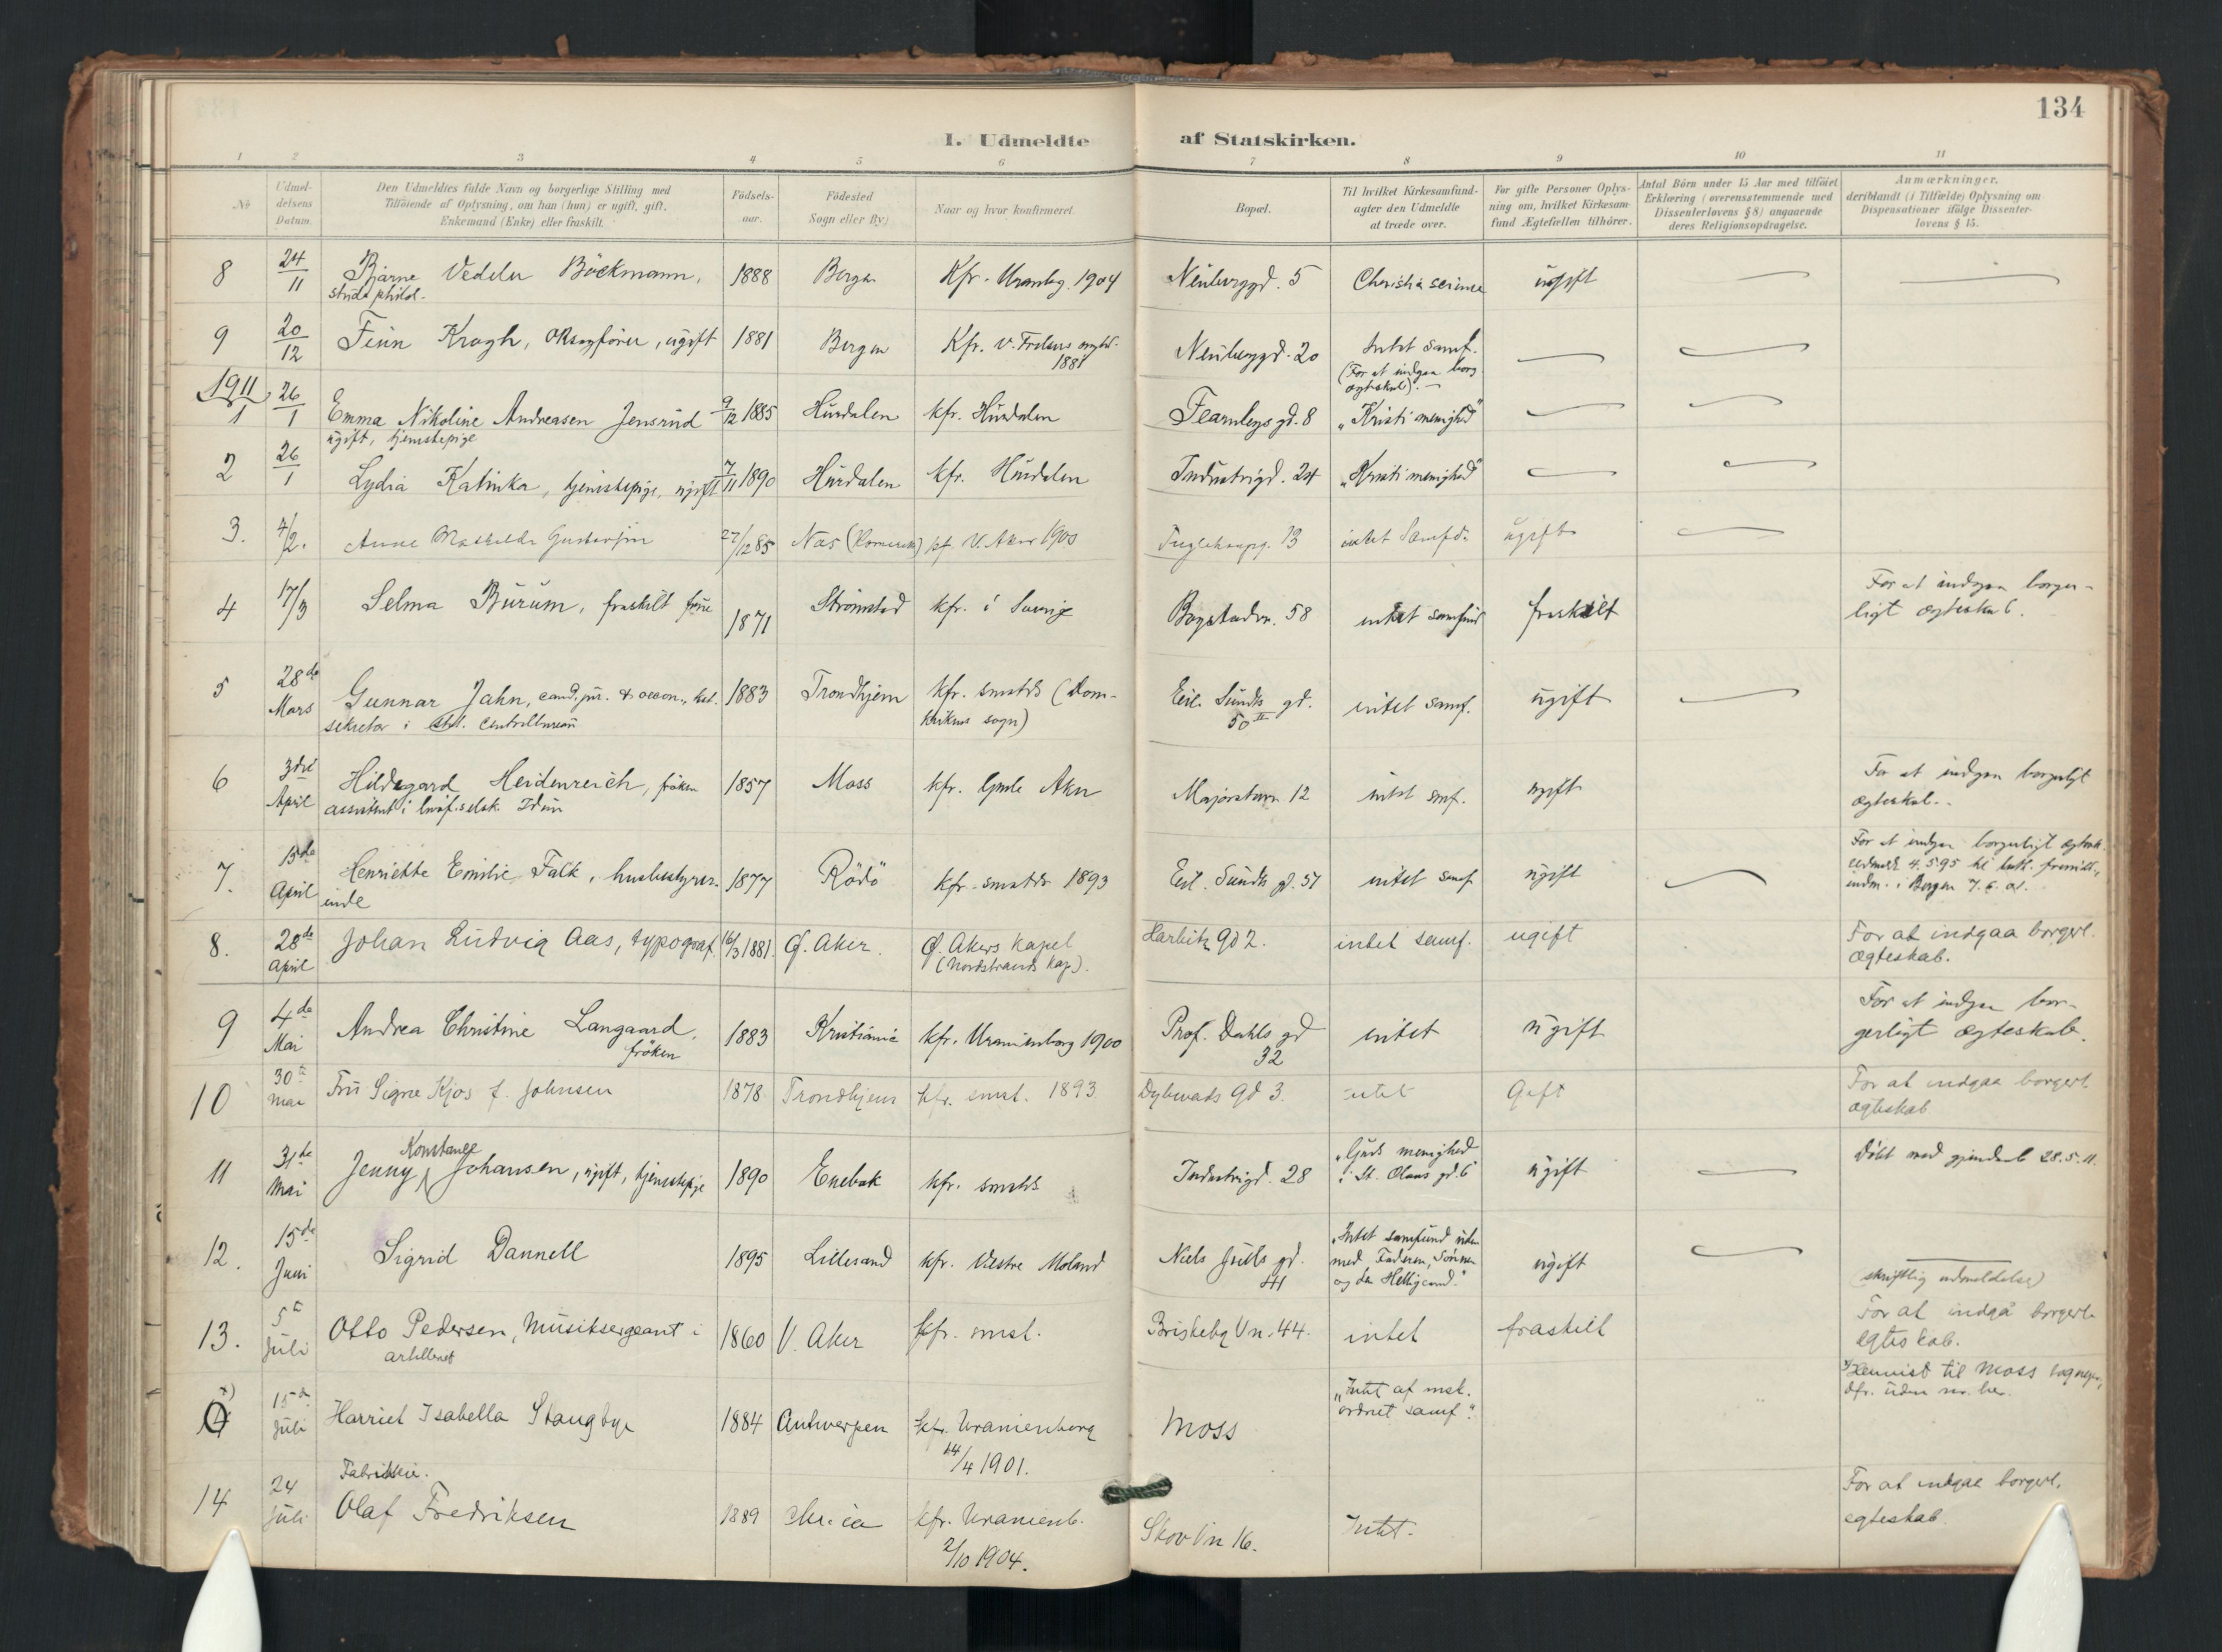 134
I. Udmeldte af Statskirken.
1 2 3 4 5 6 7 8 9 10 11
No
Udmeldelsens Datum.
Den Udmeldtes fulde Navn og borgerlige Stilling med
Tilføiende af Oplysning, om han (hun) er ugift, gift,
Enkemand (Enke) eller fraskilt.
Fødselsaar.
Fødested
Sogn eller By.
Naar og hvor konfirmeret.
Bopæl.
Til hvilket Kirkesamfund
agter den Udmeldte
at træde over.
For gifte Personer Oplys-
ning om, hvilket Kirkesam-
fund Ægtefællen tilhører.
Antal Børn under 15 Aar med tilføiet
Erklæring (overensstemmende med
Dissenterlovens § 8) angaaende
deres Religionsopdragelse.
Anmærkninger,
deriblandt (i Tilfælde) Oplysning om
Dispensationer ifølge Dissenter-
lovens § 15.
8 24/11 Bjarne Vedeler Böckmann, 1888 Bergen Kfr. Uranbg. 1904 Neuberggd. 5 Christia science ugift
stud. philol.
9 20/12 Finn Krogh, ugift 1881 Bergen Kfr. v. Frelsers 1881 Neuberggd. 20 Intet samf.
(For at indgaa borg. ægteskab).
1911
1 26/1 Emma Nikoline Andreasen Jensrud 9/12 1885 Hurdalen kfr. Hurdalen Fearnleys gd. 8 "Kristi menighed"
ugift, tjenestepige
2 26/1 Lydia Katinka, tjenestepige, ugift 7/11 1890 Hurdalen kfr. Hurdalen Industrigd. 24 "Kristi menighed"
3. 4/2. Anne Mathilde Gustavsen 27/12 85 Nes (Romerike) kf. V. Aker 1900 13 intet Samfd. ugift
4 17/3 Selma Burum, fraskilt frue 1871 Strömstad kfr. i Sverige Bogstadvn. 58 intet samfund fraskilt For at indgaa borger-
ligt ægteskab.
5 28de Mars Gunnar Jahn, cand. jur. & oecon., 1883 Trondhjem kfr. smstds (Dom-
kirkens sogn) Eil. Sundts gd. 50 II intet samf. ugift
sekretær i stat. Centralbureau
6 3die April Hildegard Heidenreich, frøken 1857 Moss kfr. Gamle Aker Majorstuvn. 12 intet smf. ugift For at indgaa borgerligt
ægteskab.
assistent i livsf.selsk. Idun
7. 15de April Henriette Emilie Falk, husbestyrer-
inde 1877 Rödö kfr. smstds 1893 Eil. Sundts gd. 57 intet samf. ugift For at indgaa borgerligt ægtesk.
Udmeldt 4.5.95 til luth. frimen.,
indm. i Bergen
8. 28de April Johan Ludvig Aas, typograf. 16/3 1881. Ø. Aker. Ø. Akers kapel
(Nordstrands kap.). Harbitz gd 2. intet samf. ugift For at indgaa borgerl.
ægteskab.
9 4de Mai Andrea Christine Langaard,
frøken 1883 Kristiania kfr. Uranienborg 1900 Prof. Dahls gd 32 intet ugift For at indgaa bor-
gerligt ægteskab.
10 30te mai Fru Signe Kjos f. Johnsen 1878 Trondhjem kfr. smst. 1893 Dybwads gd 3. intet Gift For at indgaa borgerl.
ægteskab
11 31te Mai Jenny Konstanse Johansen, ugift, tjenestepige 1890 Enebak kfr. smstds Industrigd. 28 "Guds menighed
i St. Olavs gd. 6 ugift Döbt med gjendaab 28.5.11.
12. 15de Juni Sigrid Dannell 1895 Lillesand kfr. Vestre Moland Niels Juels gd. 41 "Intet samfund uden
med Faderen, Sønnen
og den Helligaand." ugift (skriftlig udmeldelse)
13. 5te Juli Otto Pedersen, Musiksergeant i
artilleriet 1860 V. Aker kfr. smst. Briskebyvn. 44. intet fraskilt For at indgå borgerl.
egteskab.
15de Juli Harriet Isabella Stangbye 1884 Antwerpen kfr. Uranienborg
14/4 1901. Moss "Intet af mst.
ordnet samf." Henvist til Moss
dfr. uden nr. her.
14 24 Juli Fabrikkei.
Olaf Fredriksen 1889 Chr.ia kfr. Uranienb.
2/10 1904. Skovvn 16. Intet. For at indgaa borgerl.
egteskab